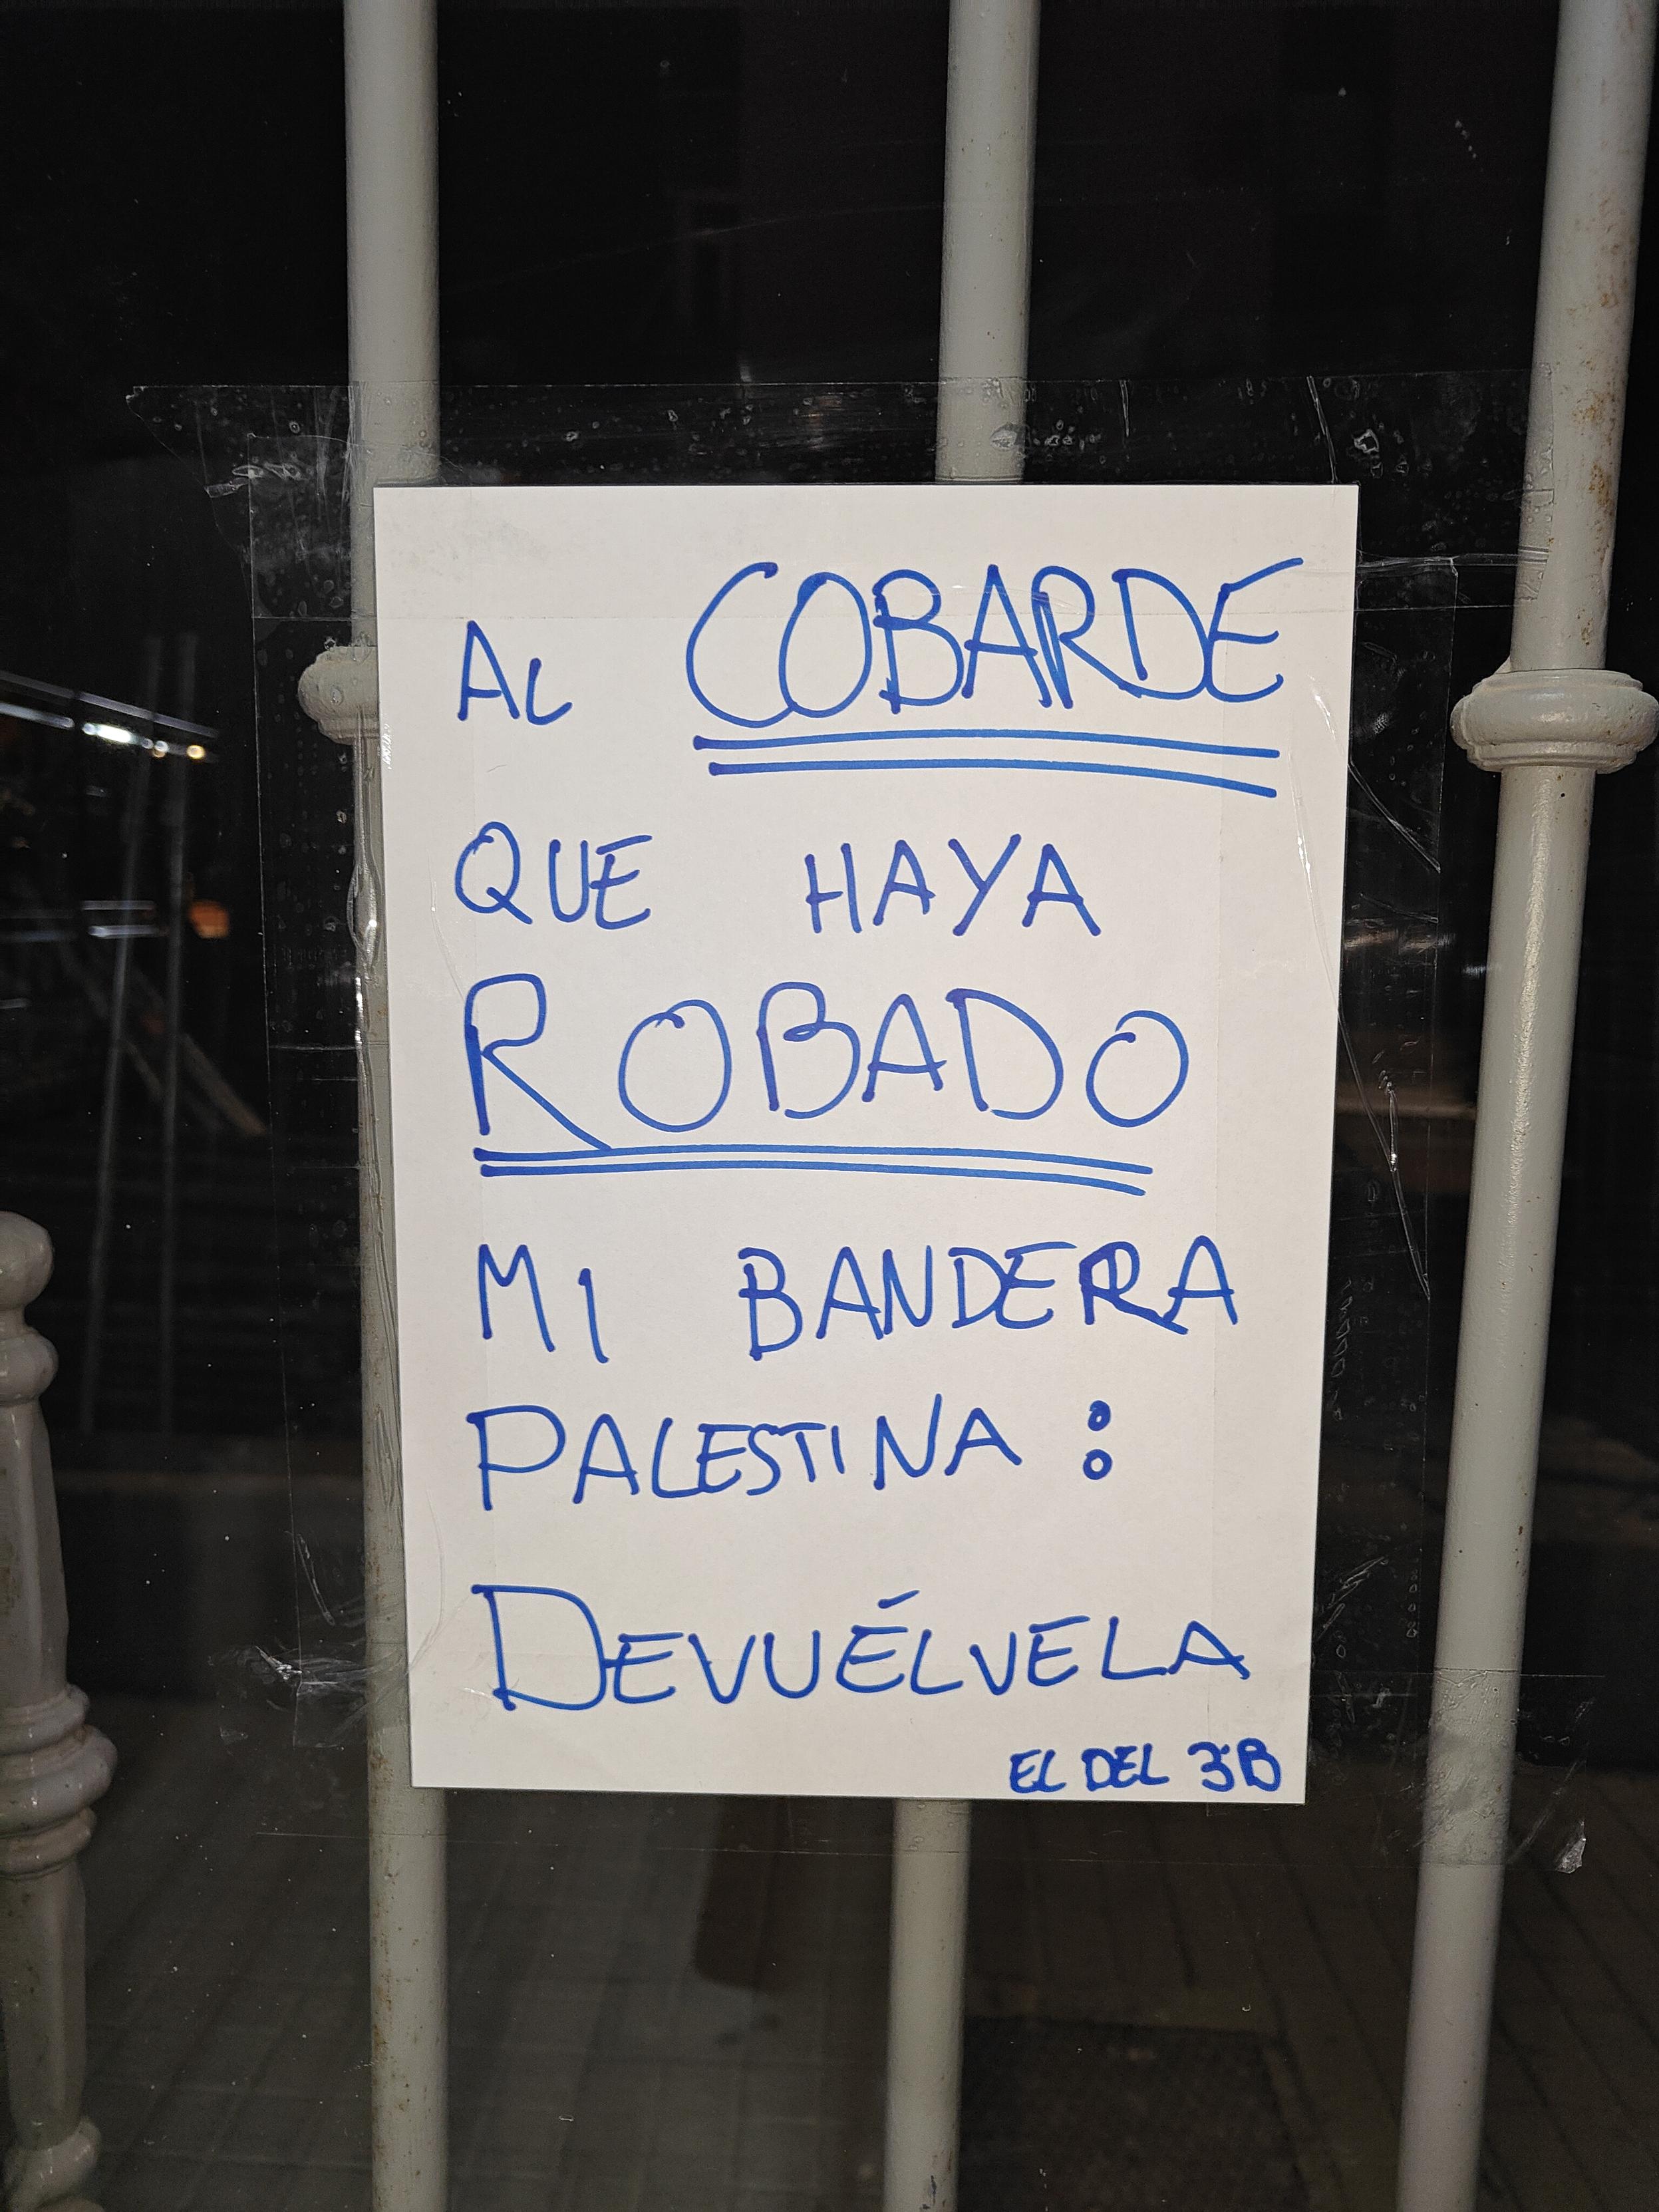 AL COBARDE
QUE HAYA
ROBADO
MI BANDERA
PALESTINA:
DEVUÉLVELA
EL DEL 3ºB